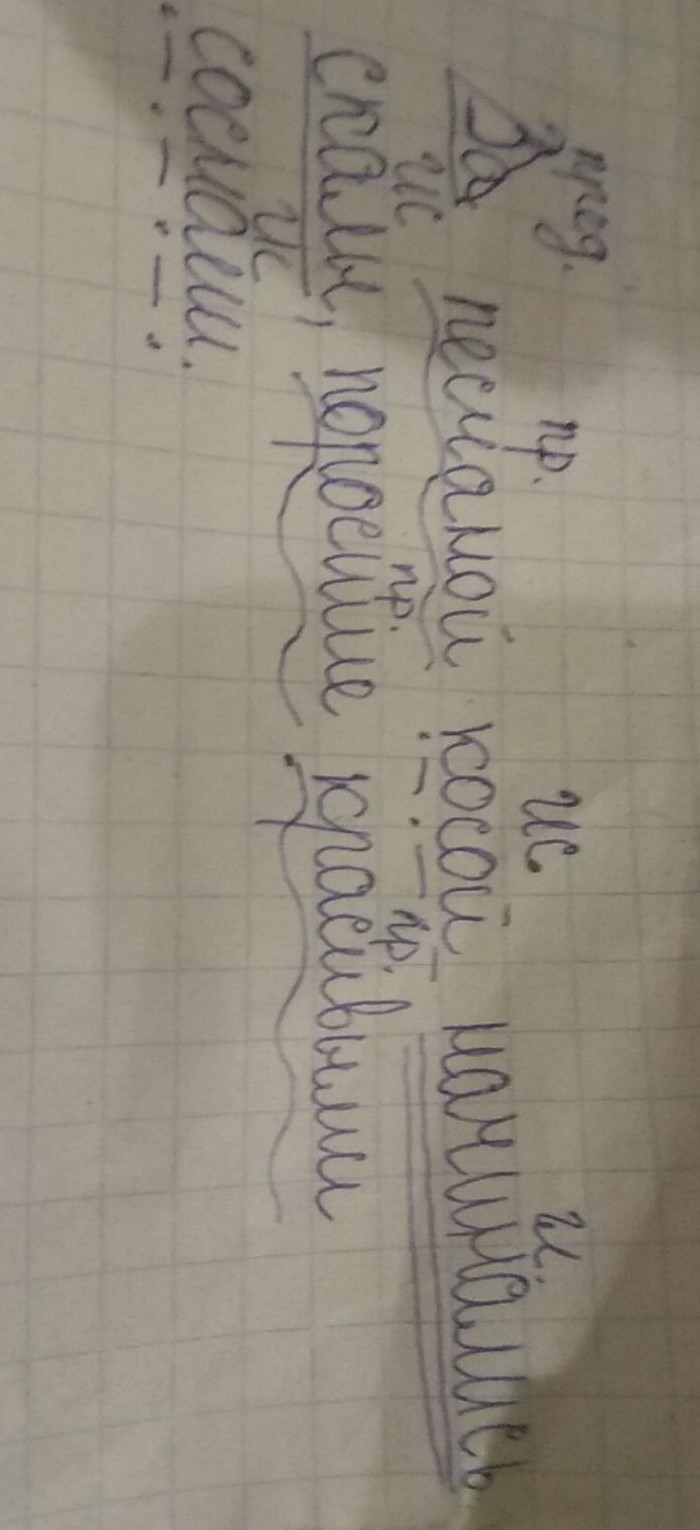 пред. пр. ис. и.
За песчаной косой начинались
ис пр. пр.
скалы, поросшие красивыми
ис
соснами.